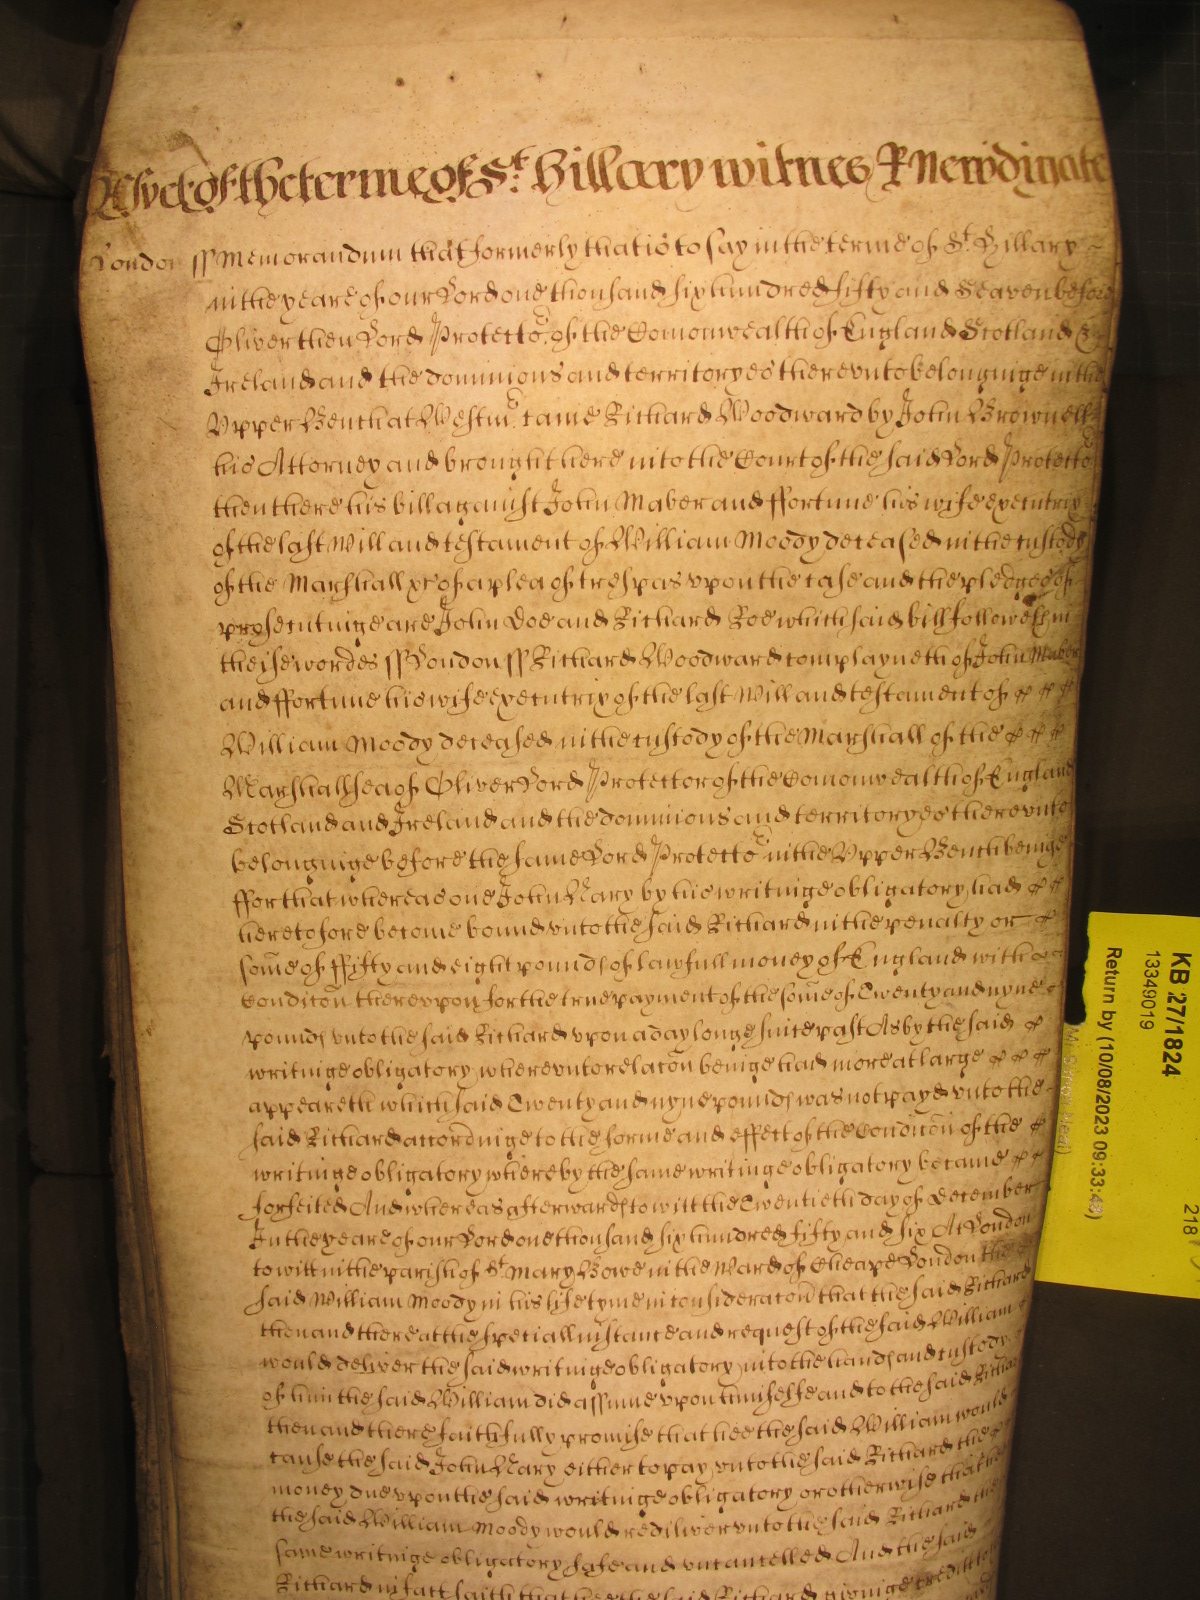 Asyet of the terme of St. Hillary witnes R Newdigate
London ss Memorandum that formerly that is to say in the terme of St. Hillary
in the yeare of our Lord one thousand six hundred fifty and Seaven before
Oliver then Lord Protector of the Comonwealth of England Scotland &
Ireland and the dominions and territoryes therevnto belonginge in the
Vpper Bench at Westmr. came Richard Woodward by John Brownell
his Attorney and brought here into the Court of the said Lord Protector
then there his bill against John Maber and ffortune his wife executrix
of the last Will and testament of William Moody deceased in the custody
of the Marshall &c of a plea of trespas vpon the case and the pledges of
prosecutinge are John Doe and Richard Roe which said bill followeth in
theise wordes ss London ss Richard Woodward complayneth of John Maber
and ffortune his wife executrix of the last Will and testament of
William Moody deceased in the custody of the Marshall of the
Marshallsea of Oliver Lord Protector of the Comonwealth of England
Scotland and Ireland and the dominions and territoryes therevnto
belonginge before the same Lord Protector in the Vpper Bench beinge
ffor that whereas one John Mary by his writinge obligatory had
heretofore become bound vnto the said Richard in the penalty or
some of ffifty and eight pounds of lawfull money of England with a
Condicon therevpon for the true payment of the some of Twenty and nyne
pounds vnto the said Richard vpon a day longe since past As by the said
writinge obligatory wherevnto relacon beinge had more at large
appeareth which said Twenty and nyne pounds was not payd vnto the
said Richard accordinge to the forme and effect of the Condicon of the
writinge obligatory whereby the same writinge obligatory became
forfeited And whereas afterwards to witt the Twentieth day of December
In the yeare of our Lord one thousand six hundred fifty and six At London
to witt in the parish of St. Mary Bowe in the Ward of Cheape London the
said William Moody in his life tyme in consideracon that the said Richard
then and there at the speciall instance and request of the said William
would deliver the said writinge obligatory into the hands and custody
of him the said William did assume vpon himselfe and to the said Richard
then and there faithfully promise that hee the said William would
cause the said John Mary either to pay vnto the said Richard the
money due vpon the said writinge obligatory or otherwise that hee
the said William Moody would rediliver vnto the said Richard the
same writinge obligatory safe and vncancelled And the said
Richard in fact saith that hee the said Richard givinge credit to
KB 27/1824
13349019
Return by (10/08/2023 09:33:43)
218